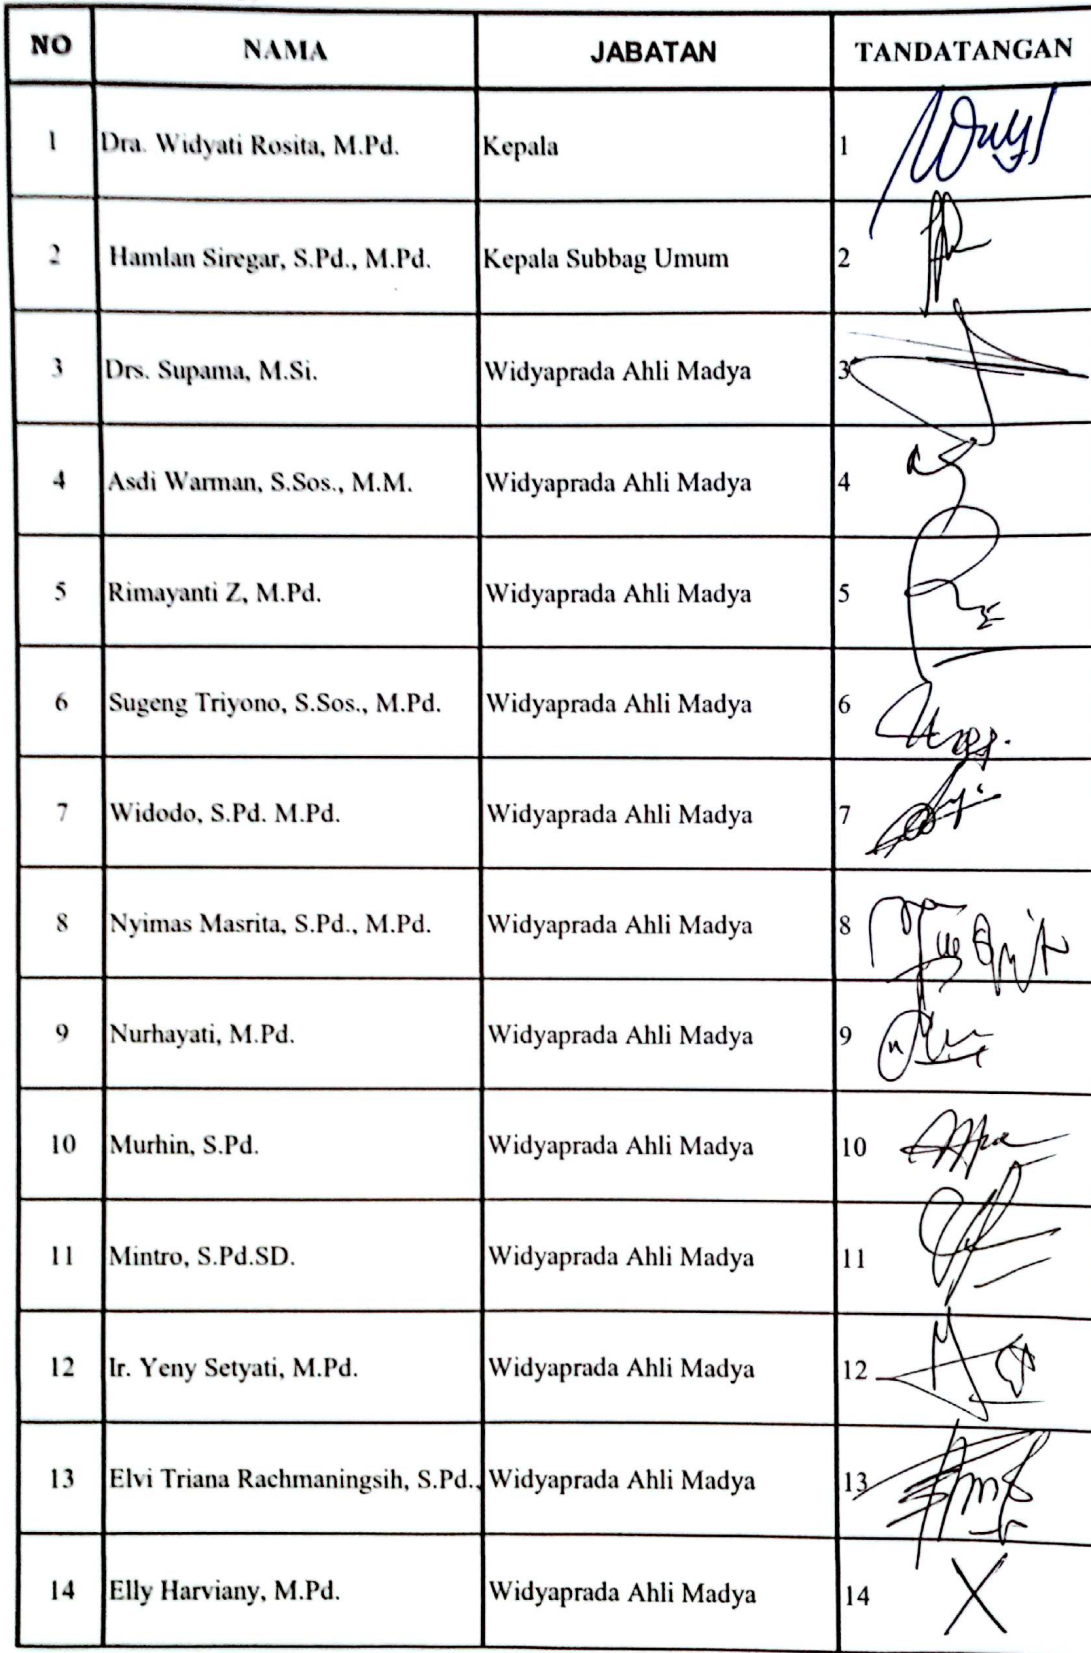 NO NAMA JABATAN TANDATANGAN
1 Dra. Widyati Rosita, M.Pd. Kepala 1
2 Hamlan Siregar, S.Pd., M.Pd. Kepala Subbag Umum 2
3 Drs. Supama, M.Si. Widyaprada Ahli Madya 3
4 Asdi Warman, S.Sos., M.M. Widyaprada Ahli Madya 4
5 Rimayanti Z, M.Pd. Widyaprada Ahli Madya 5
6 Sugeng Triyono, S.Sos., M.Pd. Widyaprada Ahli Madya 6
7 Widodo, S.Pd. M.Pd. Widyaprada Ahli Madya 7
8 Nyimas Masrita, S.Pd., M.Pd. Widyaprada Ahli Madya 8
9 Nurhayati, M.Pd. Widyaprada Ahli Madya 9
10 Murhin, S.Pd. Widyaprada Ahli Madya 10
11 Mintro, S.Pd.SD. Widyaprada Ahli Madya 11
12 Ir. Yeny Setyati, M.Pd. Widyaprada Ahli Madya 12
13 Elvi Triana Rachmaningsih, S.Pd., Widyaprada Ahli Madya 13
14 Elly Harviany, M.Pd. Widyaprada Ahli Madya 14 X